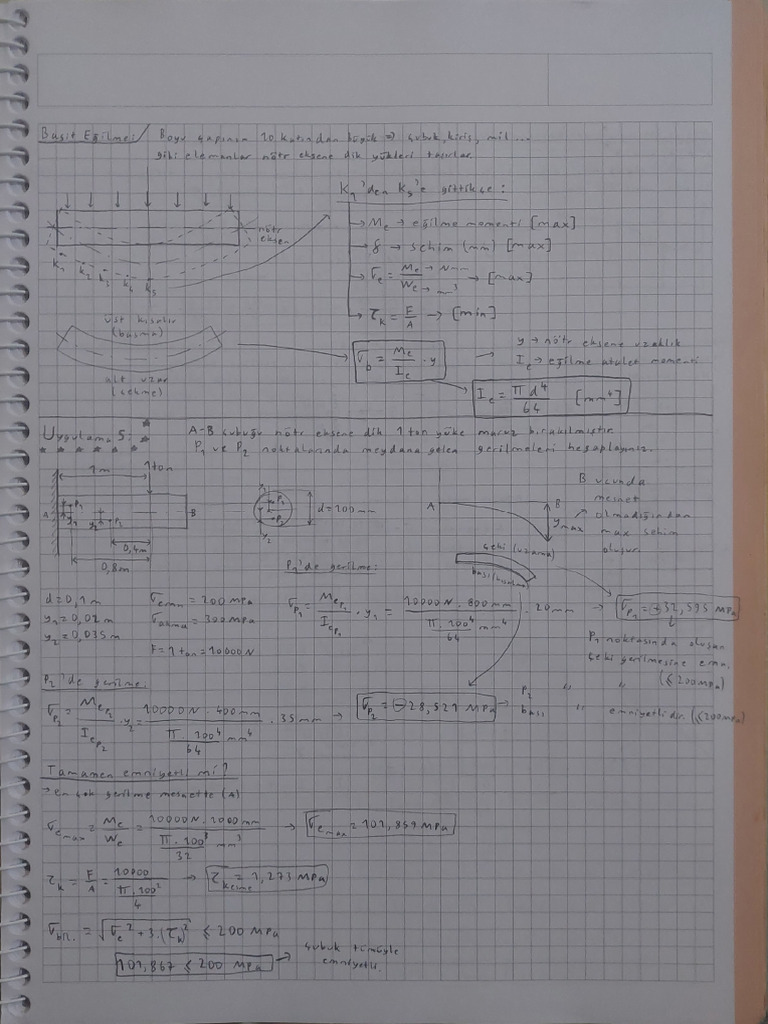 Basit Eğilme:/ Boyu çapının 10 katından büyük => çubuk, kiriş, mil ...
gibi elemanlar nötr eksene dik yükleri taşırlar.
K₁'den K₅'e gittikçe:
nötr eksen
K₁ K₂ K₃ K₄ K₅
→ Mₑ → eğilme momenti [max]
→ f → sehim (mm) [max]
→ σₑ = Mₑ → Nmm / Wₑ → mm³ → [max]
→ τₖ = F/A → [min]
üst kısalır
(basma)
alt uzar
(çekme)
σ_b = Mₑ/Iₑ · y
y → nötr eksene uzaklık
Iₑ → eğilme atalet momenti
Iₑ = π d⁴/64 [mm⁴]
Uygulama 5: A-B çubuğu nötr eksene dik 1 ton yüke maruz bırakılmıştır.
P₁ ve P₂ noktalarında meydana gelen gerilmeleri hesaplayınız.
1m 1ton
A P₁ y₁ y₂ P₂ B
0,4m
0,8m
y₁ P₁ P₂ y₂
d=100mm
A B
y max
B ucunda
mesnet
olmadığından
max sehim
oluşur.
çeki (uzama)
bası (kısalma)
d=0,1m
y₁=0,02m
y₂=0,035m
σemn = 200 MPa
σakma = 300 MPa
F=1 ton=10000N
P₁'de gerilme:
σP₁ = MeP₁/IeP₁ · y₁ = 10000N · 800mm / (π·100⁴/64 mm⁴) · 20mm → σP₁ = +32,595 MPa
P₁ noktasında oluşan
çeki gerilmesine emn.
(≤200MPa)
P₂'de gerilme:
σP₂ = MeP₂/IeP₂ · y₂ = 10000N · 400mm / (π·100⁴/64 mm⁴) · 35mm → σP₂ = -28,521 MPa → P₂ " "
bası " emniyetlidir. (≤200MPa)
Tamamen emniyetli mi?
→ en çok gerilme mesnette (A)
σe max = Mₑ/Wₑ = 10000N · 1000mm / (π·100³/32 mm³) → σe max = 101,859 MPa
τₖ = F/A = 10000 / (π·100²/4) → τkesme = 1,273 MPa
σbil. = √(σₑ² + 3·(τₖ)²) ≤ 200 MPa
101,867 ≤ 200 MPa → çubuk tümüyle
emniyetli.